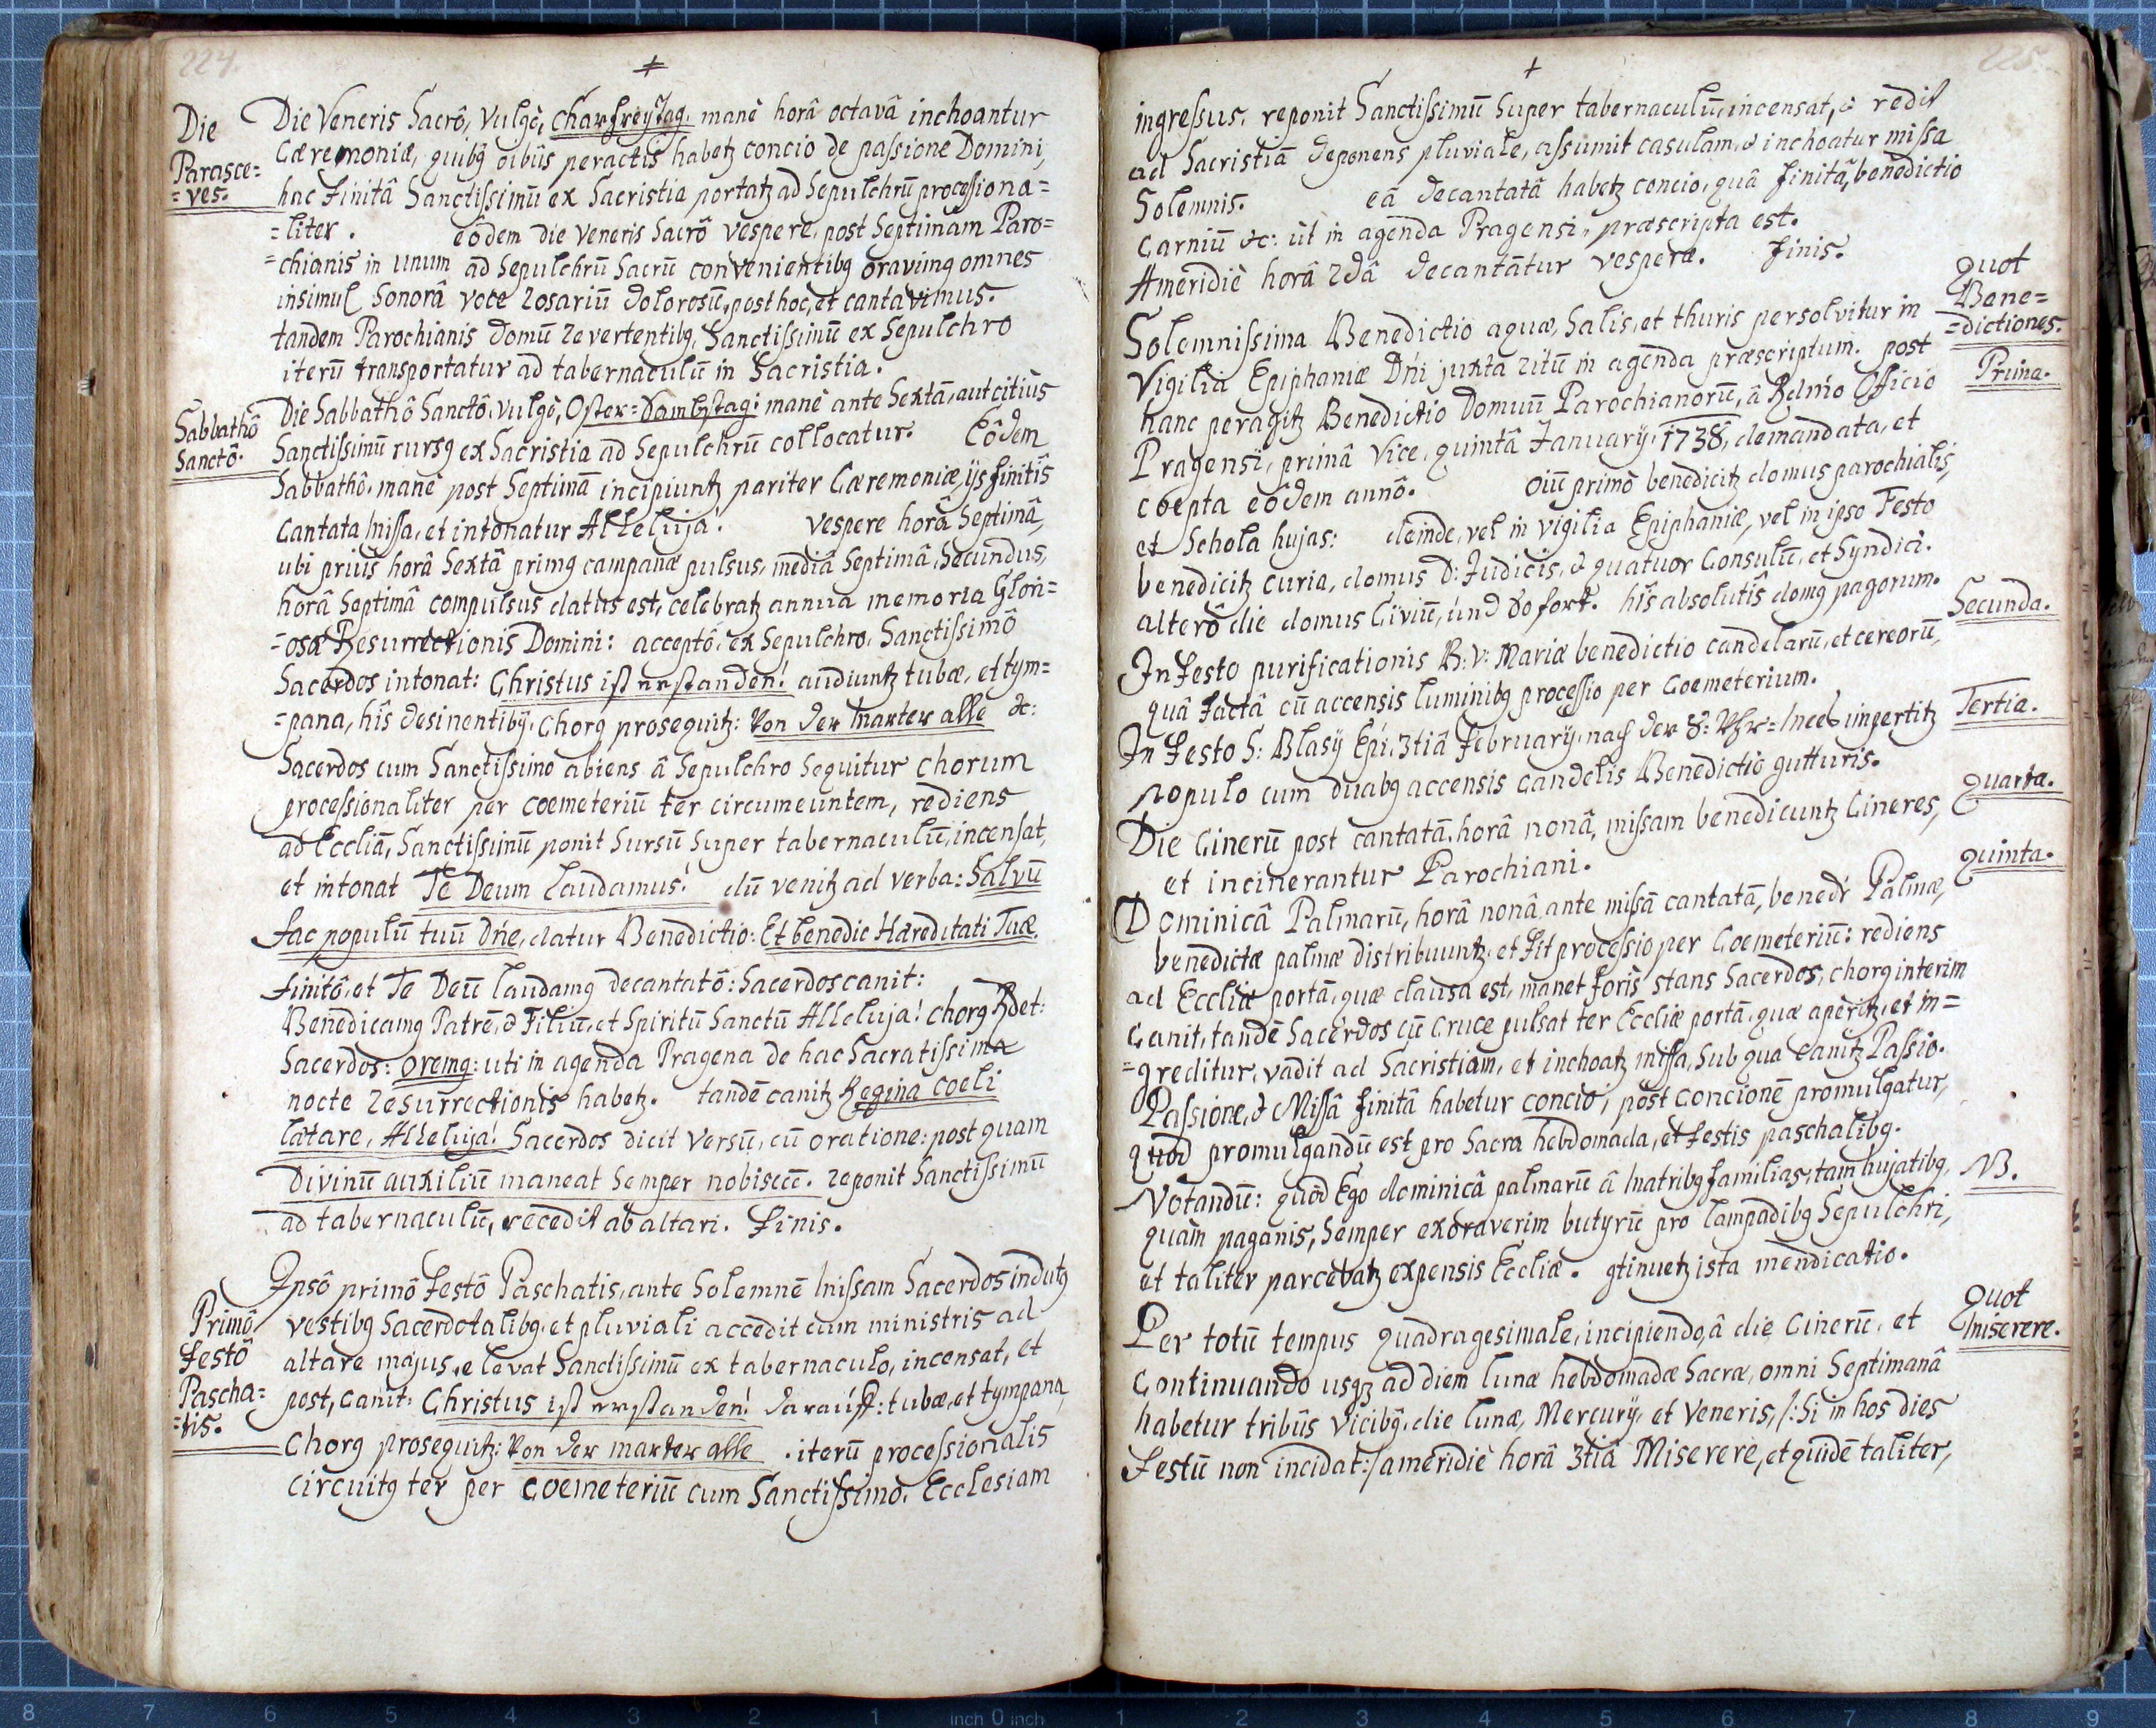 224.
Die
Parasce=
=ves.
Die Veneris Sacrô, Vulgò, Charfreÿtag. manè horâ octavâ inchoantur
Cæremoniæ, quibq oibûs peractîs habetz concio de passione Domini,
hac finitâ Sanctissimū ex Sacristia portatz ad Sepulchrū processiona=
=liter. eôdem die Veneris Sacrô vespere, post Septimam Paro=
=chianis in unum ad Sepulchrū Sacrū convenientibq oravimq omnes
insimul Sonorâ voce Rosariū dolorosū, post hoc, et cantavimus.
tandem Parochianis domū revertentibq, Sanctissimū ex Sepulchro
iterū transportatur ad tabernaculū in Sacristia.
Sabbathô
Sanctô.
Die Sabbathô Sanctô, vulgò, Oster=Sambstag: manè ante Sextā, aut citiùs
Sanctissimū rursq ex Sacristia ad Sepulchrū collocatur. Eôdem
Sabbathô, manè post Septimā incipiuntz pariter Cæremoniæ, ijs finitîs
cantata Missa, et intonatur Alleluja! vespere horâ Septimâ,
ubi priùs horâ Sextâ primq campanæ pulsus, mediâ Septimâ, Secundus,
horâ Septimâ compulsus datus est, celebratz annua memoria Glori=
=osæ Resurrectionis Domini: acceptô, ex Sepulchro, Sanctissimô
Sacerdos intonat: Christus ist erstanden! audiuntz tubæ, et tym=
=pana, hîs desinentibq, Chorq prosequitz: Von der Marter alle &c:
Sacerdos cum Sanctissimo abiens â Sepulchro Sequitur chorum
processionaliter per coemeteriū ter circumeuntem, rediens
ad Eccliā, Sanctissimū ponit Sursū Super tabernaculū, incensat,
et intonat Te Deum Laudamus! dū venitz ad verba: Salvū
fac populū tuū Dn̄e, datur Benedictio: Et benedic Hæreditati Tuæ.
finitô, et Te Deū laudamq decantatô: Sacerdos canit:
Benedicamq Patrē, & Filiū, et Spiritū Sanctū Alleluja! chorq Rdet:
Sacerdos: oremq: uti in agenda Pragena de hac Sacratissima
nocte resurrectionis habetz. tandē canitz Regina Coeli
lætare, Alleluja! Sacerdos dicit Versū, cū oratione: post quam
Divinū auxiliū maneat Semper nobiscū. reponit Sanctissimū
ad tabernaculū, recedit ab altari. finis.
Primô
festô
Pascha=
=tis.
Ipsô primô festô Paschatis, ante Solemnē Missam Sacerdos indutq
vestibq Sacerdotalibq, et pluviali accedit cum ministris ad
altare majus, elevat Sanctissimū ex tabernaculo, incensat, et
post, canit: Christus ist erstanden! darauff: tubæ, et tympana,
Chorq prosequitz: Von der marter alle . iterū processionalis
circuitq ter per coemeteriū cum Sanctissimo, Ecclesiam
225.
ingressus, reponit Sanctissimū Super tabernaculū, incensat, & redit
ad Sacristiā deponens pluviale, assumit casulam, & inchoatur missa
Solemnis. eâ decantatâ habetz concio, quâ finitâ, benedictio
carniū &c: ùt in agenda Pragensi, præscripta est.
Ameridiè horâ 2dâ decantātur vesperæ. finis.
Quot
Bene=
=dictiones.
Prima.
Solemnissima Benedictio aquæ, Salis, et thuris persolvitur in
Vigilia Epiphaniæ Dn̄i juxta ritū in agenda præscriptum. post
hanc peragitz Benedictio Domuū Parochianorū, â Rd̄mo Officio
Pragensi, primâ vice, quintâ Januarÿ, 1738, demandata, et
coepta eôdem annô. oīū primò benedicitz domus parochialis,
et Schola hujas: deinde, vel in vigilia Epiphaniæ, vel in ipso Festo
benedicitz curia, domus D: Judicis, & quatuor Consulū, et Syndici.
alterô die domus Civiū, und so fort. hîs absolutîs domq pagorum.
Secunda.
In festo purificationis B: V: Mariæ benedictio candelarū, et cereorū,
quâ factâ cū accensis luminibq processio per Coemeterium.
Tertia.
In festo S: Blasÿ Epi, 3tiâ Februarÿ, nach der 8: Uhr=Mees impertitz
populo cum duabq accensis candelis Benedictio gutturis.
Quarta.
Die Cinerū post cantatā, horâ nonâ, missam benedicuntz Cineres,
et incinerantur Parochiani.
Quinta.
Dominicâ Palmarū, horâ nonâ, ante missā cantatā, bened̄r Palmæ,
benedictæ palmæ distribuuntz, et fit processio per Coemeteriū: rediens
ad Eccliæ portā, quæ clausa est, manet forìs stans Sacerdos, chorq interim
canit, tandē Sacerdos cū Cruce pulsat ter Eccliæ portā, quæ aperitz, et in=
=greditur, vadit ad Sacristiam, et inchoatz missa, Sub qua canitz Passio.
Passione, & Missâ finitâ habetur concio, post concionē promulgatur,
quod promulgandū est pro Sacra hebdomada, et festis paschalibq.
NB.
Notandū: quòd Ego dominicâ palmarū â Matribq familias, tam hujatibq,
quàm paganis, Semper exoraverim butyrū pro lampadibq Sepulchri,
et taliter parcebatz expensis Eccliæ. gtinuetz ista mendicatio.
Quot
Miserere.
Per totū tempus quadragesimale, incipiendo, â die Cinerū, et
Continuando usqz ad diem lunæ hebdomadæ Sacræ, omni Septimanâ
habetur tribùs vicibq, die lunæ, Mercurÿ, et Veneris, /: Si in hos dies
festū non incidat:/ ameridiè horâ 3tiâ Miserere, et quidē taliter,